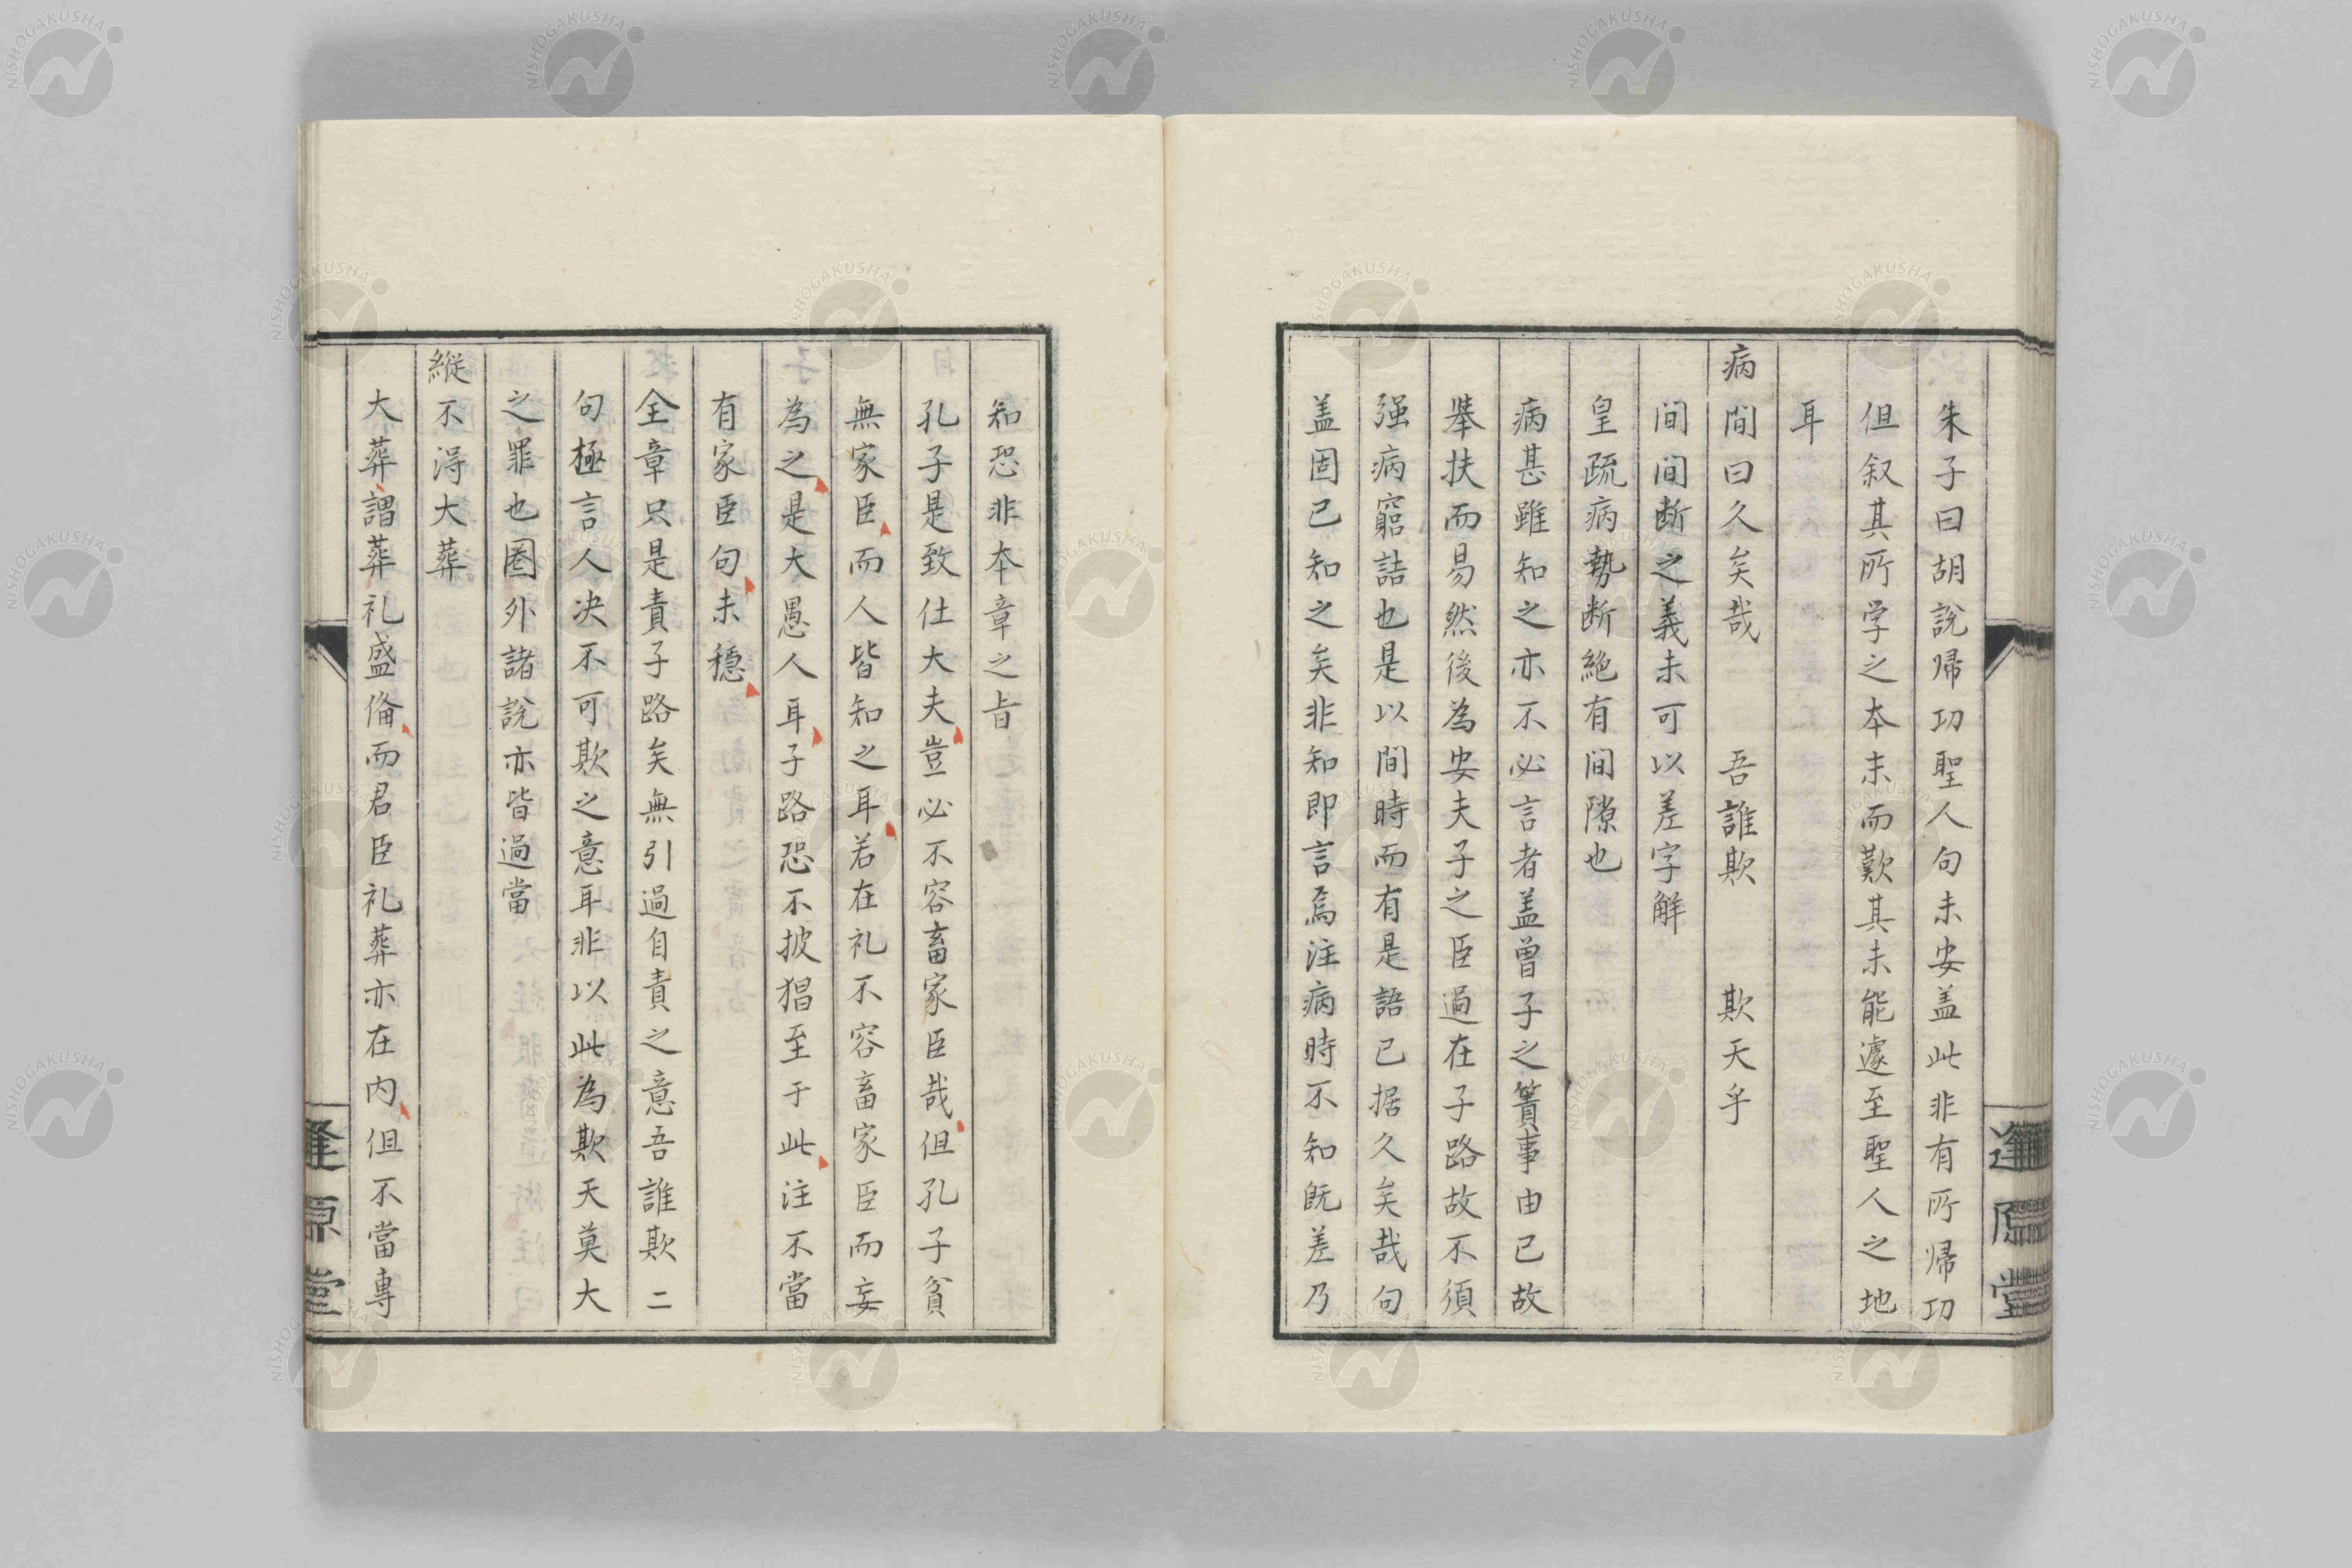 朱子曰胡説帰功聖人句未安盖此非有所帰功
但叙其所学之本末而歎其未能遽至聖人之地
耳
病間曰久矣哉　吾誰欺　欺天乎
間間断之義未可以差字解
皇疏病勢断絶有間隙也
病甚雖知之亦不必言者盖曾子之簀事由已故
挙扶而易然後為安夫子之臣過在子路故不須
强病窮詰也是以間時而有是語已据久矣哉句
盖固已知之矣非知即言焉注病時不知既差乃
逢原堂
知恐非本章之旨
孔子是致仕大夫豈必不容畜家臣哉但孔子貧
無家臣而人皆知之耳若在礼不容畜家臣而妄
為之是大愚人耳子路恐不披猖至于此注不當
有家臣句未穏
全章只是責子路矣無引過自責之意吾誰欺二
句極言人决不可欺之意耳非以此為欺天莫大
之罪也圏外諸説亦皆過當
縦不淂大葬
大葬謂葬礼盛俻而君臣礼葬亦在内但不當專
逢原堂
NISHOGAKUSHA